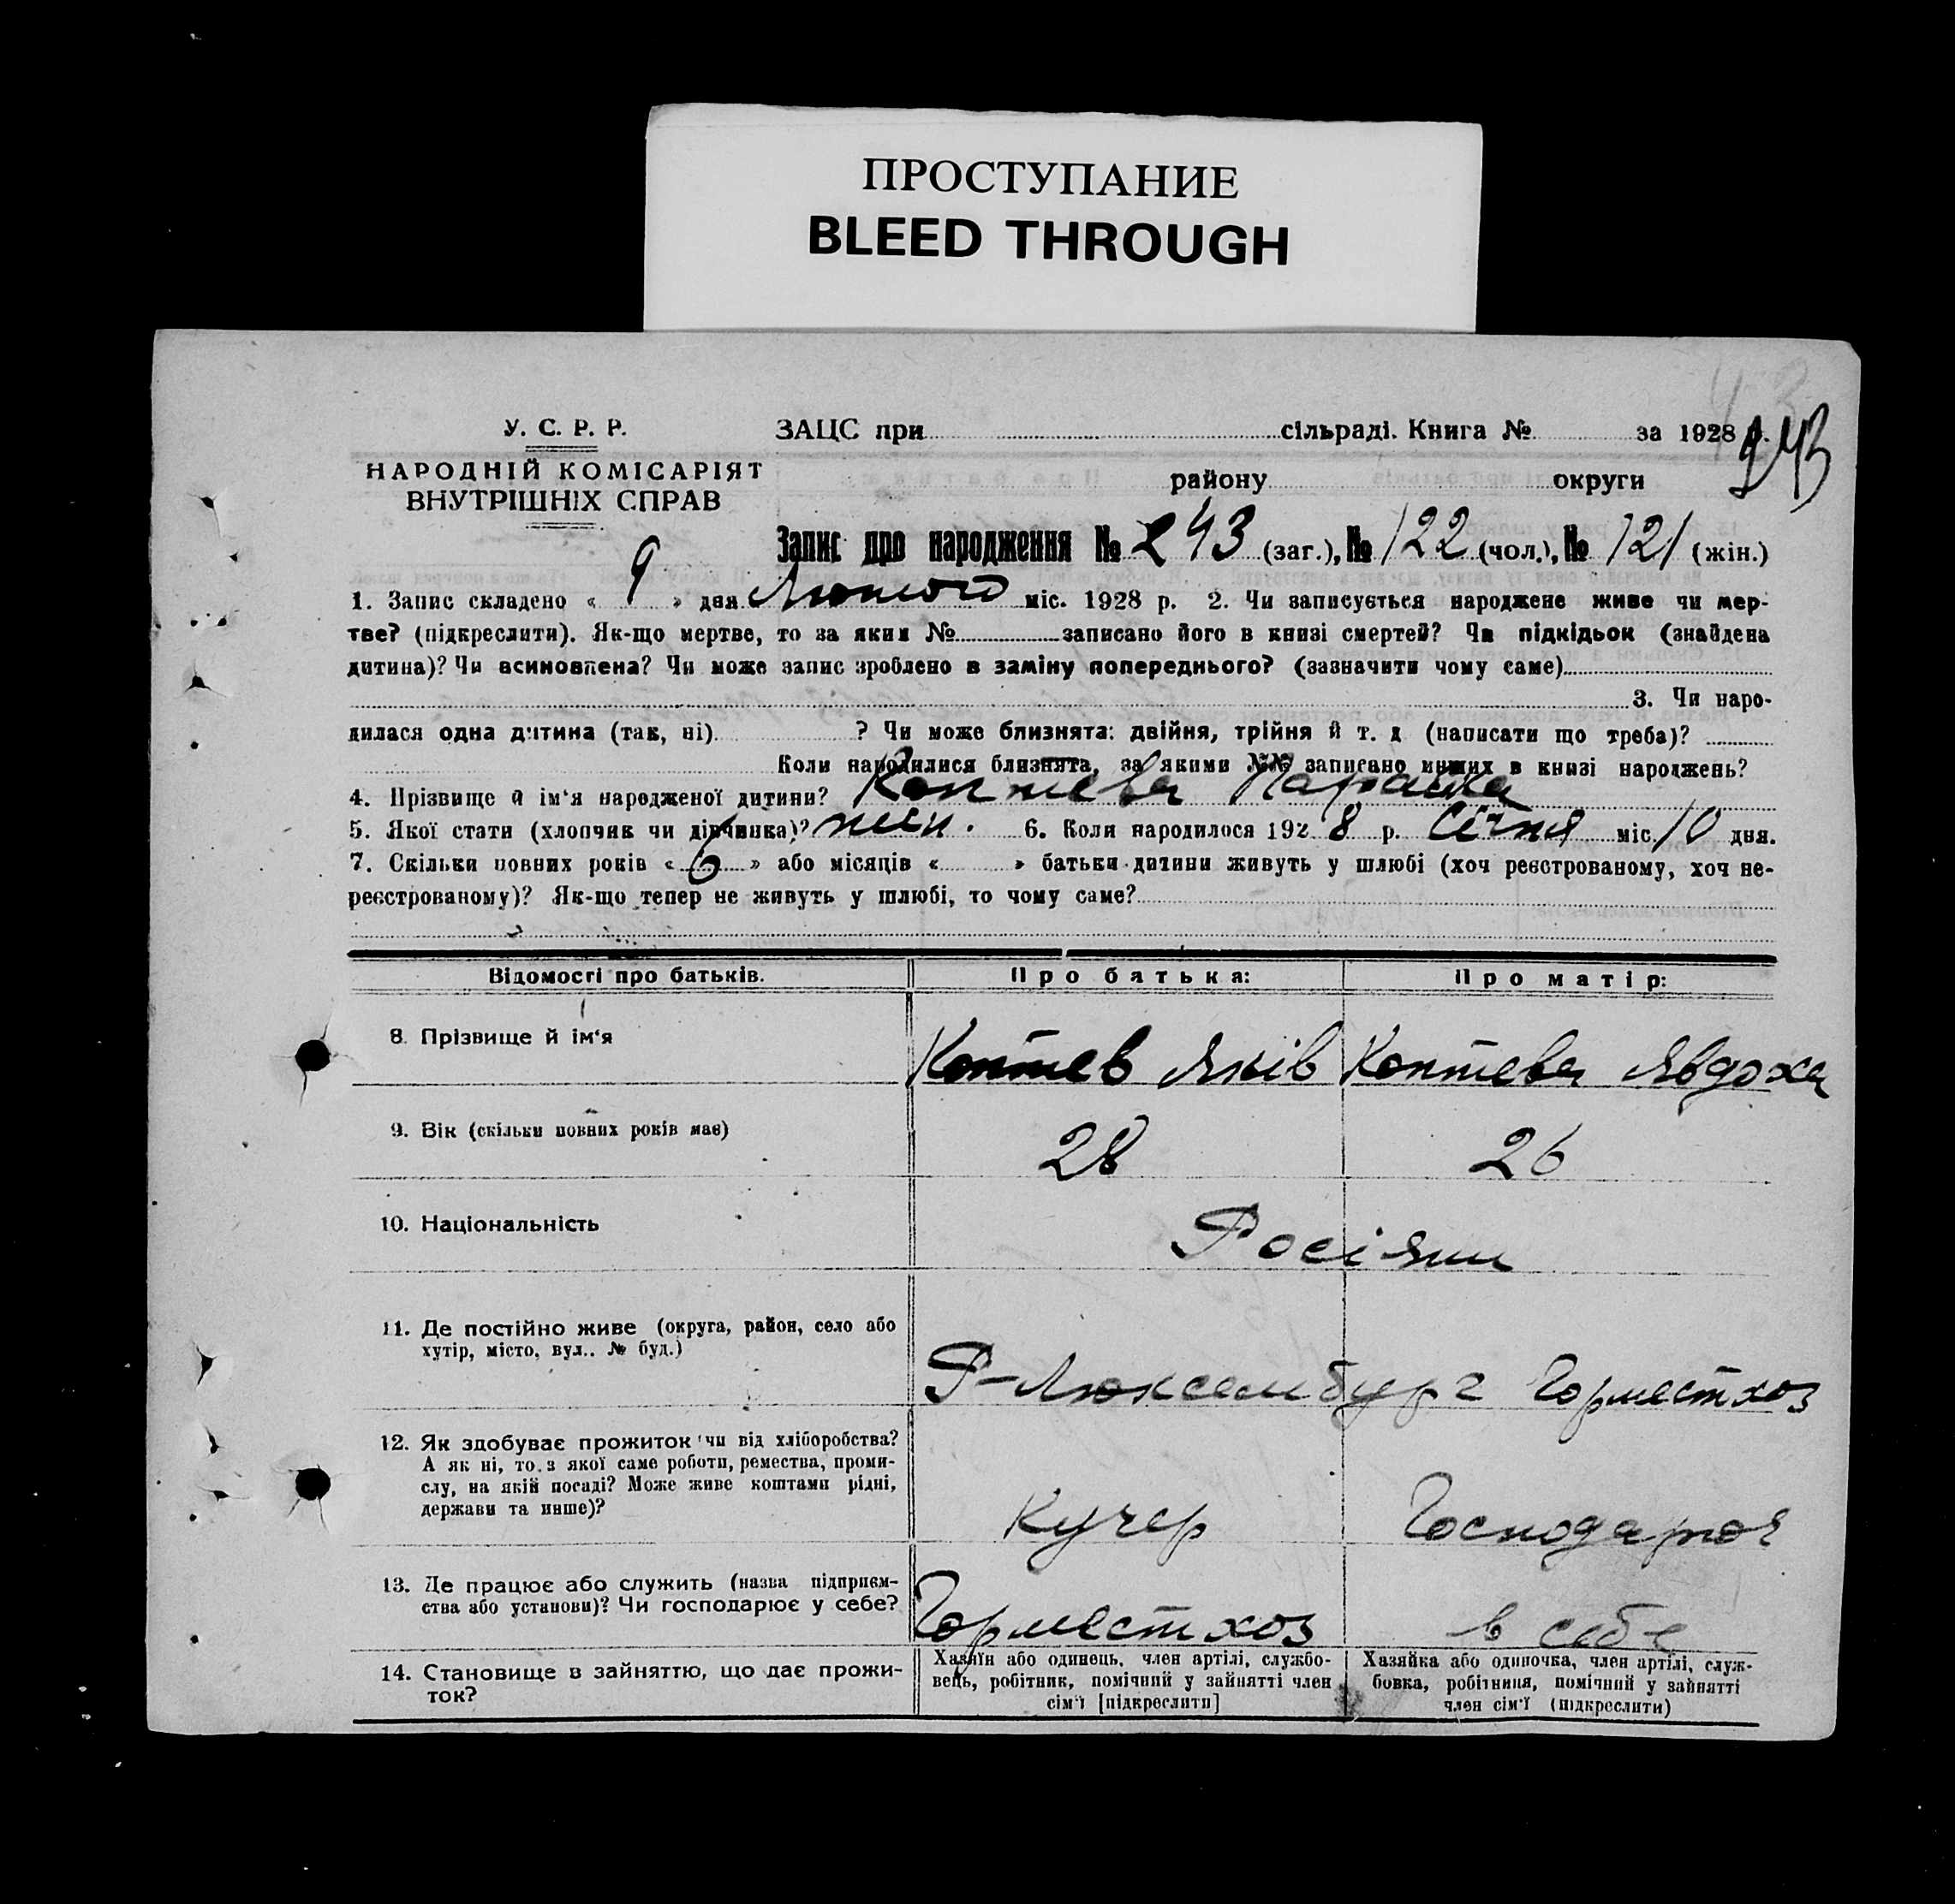 ПРОСТУПАНИЕ
BLEED THROUGH
43
243
У. С. Р. Р.
НАРОДНІЙ КОМІСАРІЯТ
ВНУТРІШНІХ СПРАВ
ЗАЦС при сільраді. Книга № за 1928 р.
району округи
Запис про народження № 243 (заг.), № 122 (чол.), № 121 (жін.)
1. Запис складено « 9 » дня Лютого міс. 1928 р. 2. Чи записується народжене живе чи мер-
тве? (підкреслити). Як-що мертве, то за яким № записано його в книзі смертей? Чи підкідьок (знайдена
дитина)? Чи асиновлена? Чи може запис зроблено в заміну попереднього? (зазначити чому саме)
3. Чи наро-
дилася одна дитина (так, ні) ? Чи може близнята: двійня, трійня й т. д (написати що треба)?
Коли народилися близнята, за якими №№ записано инших в книзі народжень?
4. Прізвище й ім‘я народженої дитини? Коптева Параска
5. Якої стати (хлопчик чи дівчинка)? жін. 6. Коли народилося 1928 р. Січня міс. 10 дня.
7. Скільки повних років « 6 » або місяців « » батьки дитини живуть у шлюбі (хоч реєстрованому, хоч не-
реєстрованому)? Як-що тепер не живуть у шлюбі, то чому саме?
Відомості про батьків. Про батька: Про матір:
8. Прізвище й ім‘я Коптев Яків Коптева Явдоха
9. Вік (скільки повних років має) 28 26
10. Національність Росіяни
11. Де постійно живе (округа, район, село або
хутір, місто, вул.. № буд.)
Р-Люксембург Горместхоз
12. Як здобуває прожиток чи від хліборобства?
А як ні, то з якої саме роботи, ремества, проми-
слу, на якій посаді? Може живе коштами рідні,
держави та инше)?
Кучер Господарює
13. Де працює або служить (назва підприєм-
ства або установи)? Чи господарює у себе?
Горместхоз в себе
14. Становище в зайняттю, що дає прожи-
ток?
Хазяїн або одинець, член артілі, службо-
вець, робітник, помічний у зайнятті член
сім‘ї [підкреслити]
Хазяйка або одиночка, член артілі, служ-
бовка, робітниця, помічний у зайнятті
член сім‘ї (підкреслити)